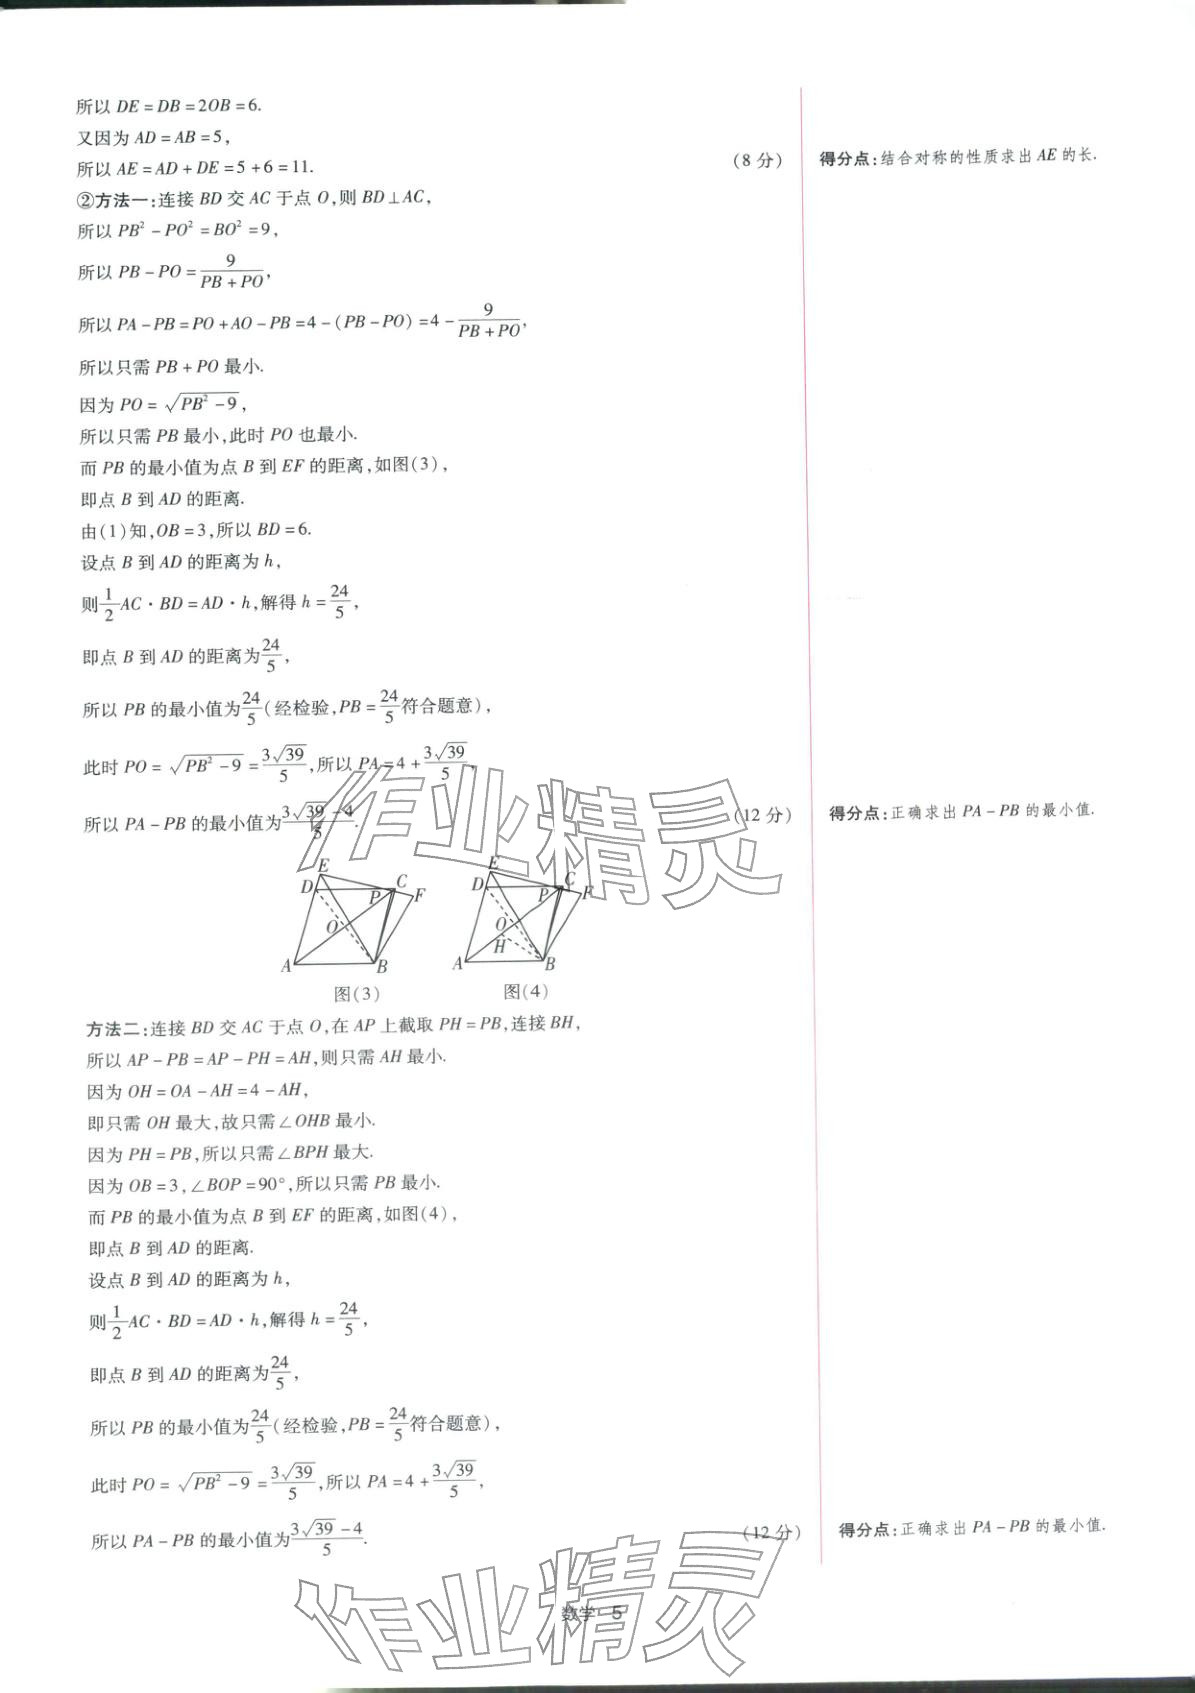 所以 DE = DB = 2OB = 6.
又因为 AD = AB = 5,
所以 AE = AD + DE = 5 + 6 = 11. (8 分) 得分点:结合对称的性质求出 AE 的长.
②方法一:连接 BD 交 AC 于点 O,则 BD⊥AC,
所以 PB² - PO² = BO² = 9,
所以 PB - PO = 9/(PB + PO),
所以 PA - PB = PO + AO - PB = 4 - (PB - PO) = 4 - 9/(PB + PO),
所以只需 PB + PO 最小.
因为 PO = √(PB² - 9),
所以只需 PB 最小,此时 PO 也最小.
而 PB 的最小值为点 B 到 EF 的距离,如图(3),
即点 B 到 AD 的距离.
由(1)知,OB = 3,所以 BD = 6.
设点 B 到 AD 的距离为 h,
则 1/2 AC · BD = AD · h,解得 h = 24/5,
即点 B 到 AD 的距离为 24/5,
所以 PB 的最小值为 24/5 (经检验,PB = 24/5 符合题意),
此时 PO = √(PB² - 9) = 3√39/5,所以 PA = 4 + 3√39/5,
所以 PA - PB 的最小值为 (3√39 - 4)/5. (12 分) 得分点:正确求出 PA - PB 的最小值.
作业精灵
E D C P F O A B
E D C P F O H A B
图(3) 图(4)
方法二:连接 BD 交 AC 于点 O,在 AP 上截取 PH = PB,连接 BH,
所以 AP - PB = AP - PH = AH,则只需 AH 最小.
因为 OH = OA - AH = 4 - AH,
即只需 OH 最大,故只需∠OHB 最小.
因为 PH = PB,所以只需∠BPH 最大.
因为 OB = 3,∠BOP = 90°,所以只需 PB 最小.
而 PB 的最小值为点 B 到 EF 的距离,如图(4),
即点 B 到 AD 的距离.
设点 B 到 AD 的距离为 h,
则 1/2 AC · BD = AD · h,解得 h = 24/5,
即点 B 到 AD 的距离为 24/5,
所以 PB 的最小值为 24/5 (经检验,PB = 24/5 符合题意),
此时 PO = √(PB² - 9) = 3√39/5,所以 PA = 4 + 3√39/5,
所以 PA - PB 的最小值为 (3√39 - 4)/5. (12 分) 得分点:正确求出 PA - PB 的最小值.
作业精灵
数学 5